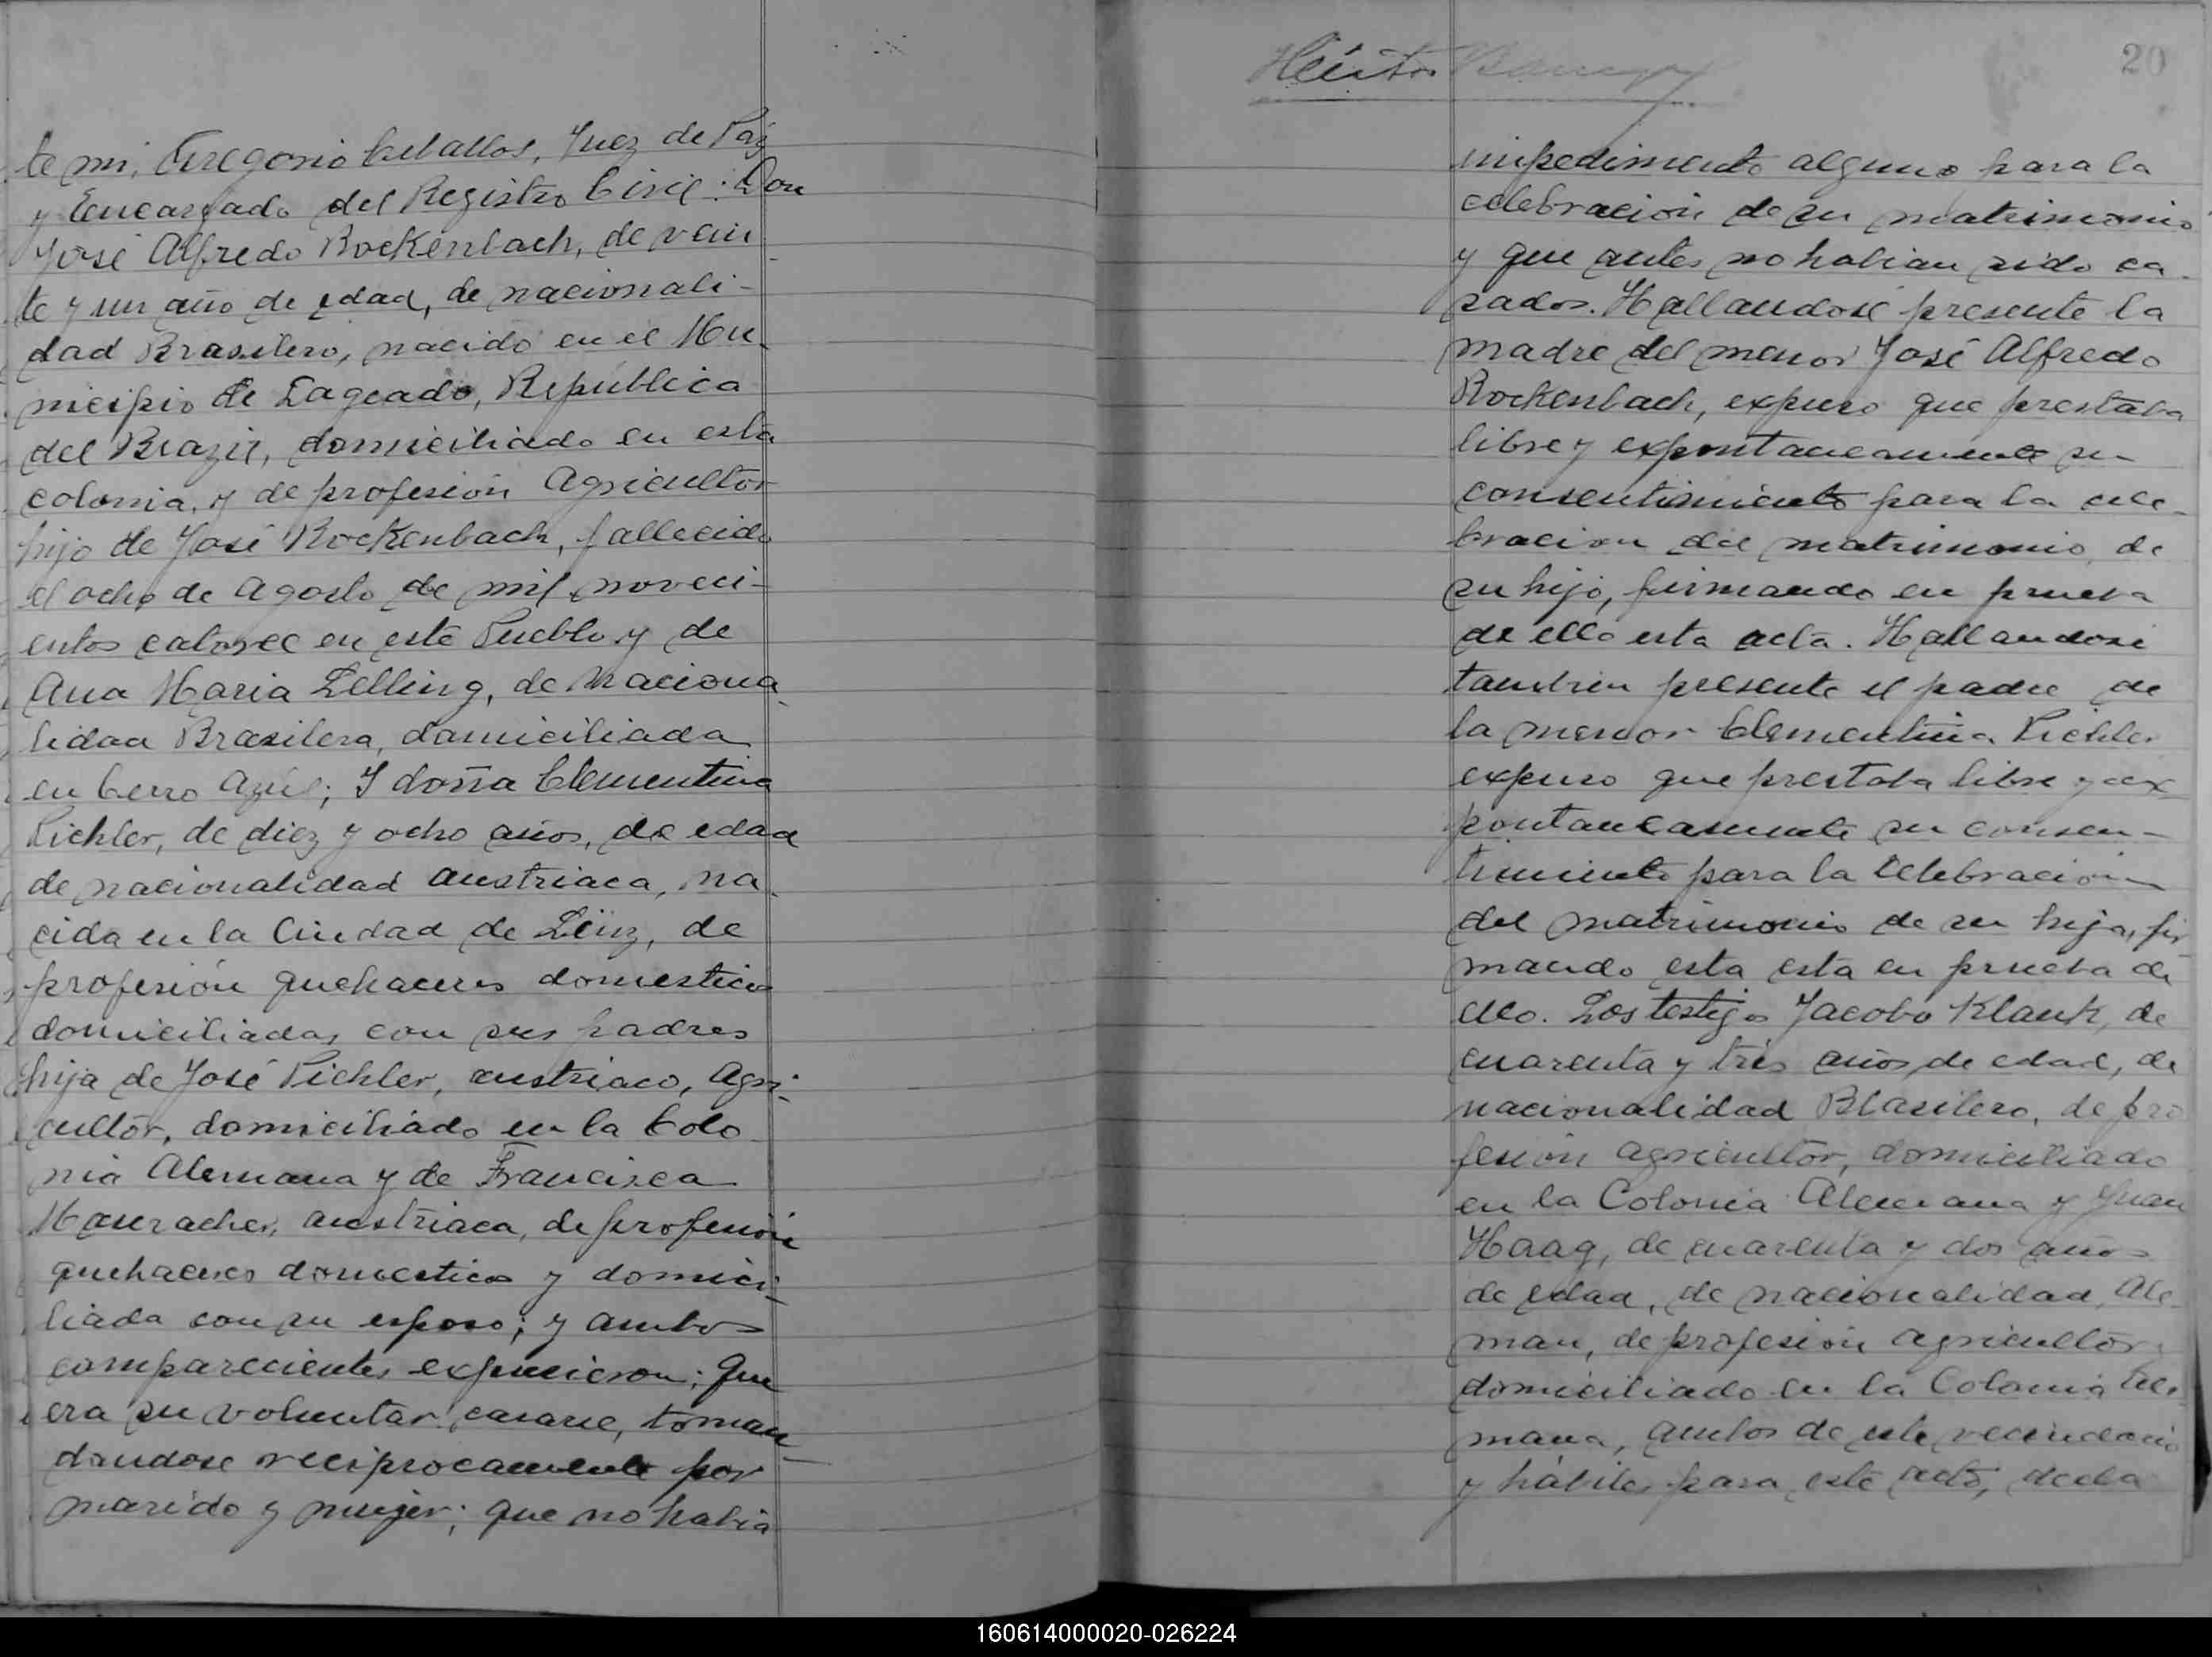 te mi, Gregorio Ceballos, Juez de Paz
y Encargado del Registro Civil: Don
José Alfredo Rockenbach, de vein
te y un año de edad, de nacionali-
dad Brasilero, nacido en el Mu
nicipio de Lageado, República
del Brazil, domiciliado en esta
colonia, y de profesión Agricultor
hijo de José Rockenbach, fallecido
el ocho de Agosto de mil noveci-
entos catorce en este Pueblo y de
Ana Maria Lelling, de Naciona-
lidad Brasilera, domiciliada
en Cerro Azúl; Y doña Clementina
Pichler, de diez y ocho años, de edad
de nacionalidad austriaca, na-
cida en la Ciudad de Leinz, de
profesión quehaceres domesticos
domiciliada, con sus padres
hija de José Pichler, austriaco, Agri-
cultor, domiciliado en la Colo
nia Alemana y de Francisca
Mauracher, austriaca, de profesión
quehaceres domesticos y domici-
liada con su esposo; y ambos
comparecientes expusieron; Que
era su voluntar casarse, toman-
dandose reciprocamente por
marido y mujer; que no habia
Héctor
20
impedimento alguno para la
celebracion de su matrimonio
y que antes no habian sido ca-
sados. Hallandose presente la
madre del menor José Alfredo
Rockenbach, expuso que prestaba
libre y expontaneamente su
consentimiento para la cele-
bracion del matrimonio, de
su hijo, firmando en prueba
de ello esta acta. Hallandose
tambien presente el padre de
la menor Clementina Pichler
expuso que prestaba libre y ex-
pontaneamente su consen-
timiento para la celebracion
del matrimonio de su hija, fir
mando esta esta en prueba de
ello. Los testigos Jacobo Klauk, de
cuarenta y tres años de edad, de
nacionalidad Blasilero, de pro
fesion agricultor, domiciliado
en la Colonia Alemana y Juan
Haag, de cuarenta y dos años
de edad, de nacionalidad, Ale-
man, de profesión agricultor
domiciliado en la Colonia Ale-
mana, ambos de este vecindario
y hábiles para este acto, decla
160614000020-026224